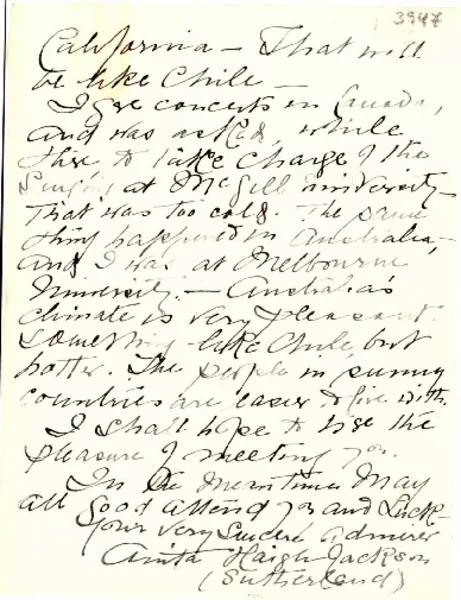 3947
California – That will
be like Chile –
I gve concerts in Canada,
and was asked, while
there to take charge of the
Singing at McGill University –
That was too cold. The same
thing happened in Australia –
and I was at Melbourne
University. – Australia's
climate is very pleasant
something like Chile, but
hotter. The people in sunny
countries are easier to live with.
I shall hope to have the
pleasure of meeting you.
In the meantime May
all good attend you and Luck –
Your very sincere admirer
Anita Haigh-Jackson
(Sutherland)